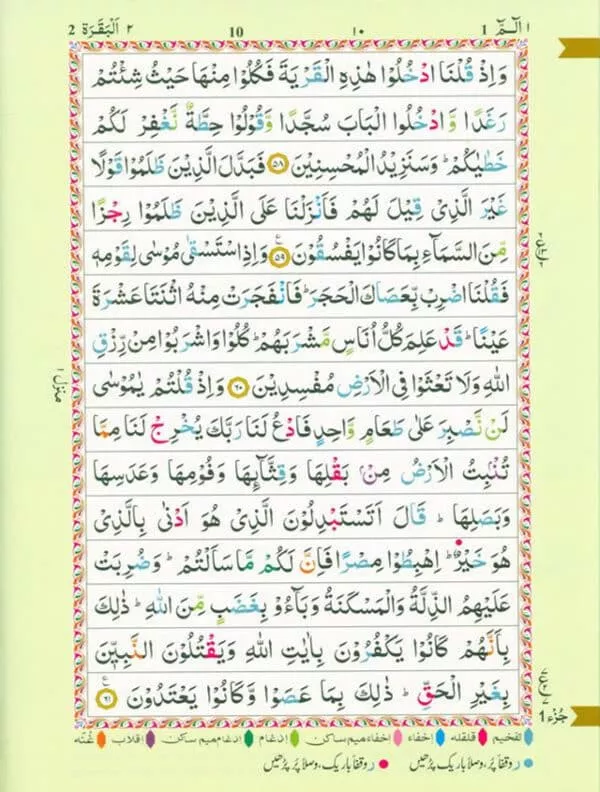 ١ الٓمّٓ 1 ١٠ 10 ٢ اَلْبَقَرَة 2
وَاِذْ قُلْنَا ادْخُلُوْا هٰذِهِ الْقَرْيَةَ فَكُلُوْا مِنْهَا حَيْثُ شِئْتُمْ
رَغَدًا وَّادْخُلُوا الْبَابَ سُجَّدًا وَّقُوْلُوْا حِطَّةٌ نَّغْفِرْ لَكُمْ
خَطٰيٰكُمْ ؕ وَسَنَزِيْدُ الْمُحْسِنِيْنَ ﴿۵۸﴾ فَبَدَّلَ الَّذِيْنَ ظَلَمُوْا قَوْلًا
غَيْرَ الَّذِيْ قِيْلَ لَهُمْ فَاَنْزَلْنَا عَلَى الَّذِيْنَ ظَلَمُوْا رِجْزًا
مِّنَ السَّمَآءِ بِمَا كَانُوْا يَفْسُقُوْنَ ﴿۵۹﴾ ع وَاِذِ اسْتَسْقٰى مُوْسٰى لِقَوْمِهٖ
فَقُلْنَا اضْرِبْ بِّعَصَاكَ الْحَجَرَ ؕ فَانْفَجَرَتْ مِنْهُ اثْنَتَا عَشْرَةَ
عَيْنًا ؕ قَدْ عَلِمَ كُلُّ اُنَاسٍ مَّشْرَبَهُمْ ؕ كُلُوْا وَاشْرَبُوْا مِنْ رِّزْقِ
اللّٰهِ وَلَا تَعْثَوْا فِى الْاَرْضِ مُفْسِدِيْنَ ﴿۶۰﴾ وَاِذْ قُلْتُمْ يٰمُوْسٰى
لَنْ نَّصْبِرَ عَلٰى طَعَامٍ وَّاحِدٍ فَادْعُ لَنَا رَبَّكَ يُخْرِجْ لَنَا مِمَّا
تُنْۢبِتُ الْاَرْضُ مِنْۢ بَقْلِهَا وَقِثَّآئِهَا وَفُوْمِهَا وَعَدَسِهَا
وَبَصَلِهَا ؕ قَالَ اَتَسْتَبْدِلُوْنَ الَّذِيْ هُوَ اَدْنٰى بِالَّذِيْ
هُوَ خَيْرٌ ؕ اِهْبِطُوْا مِصْرًا فَاِنَّ لَكُمْ مَّا سَاَلْتُمْ ؕ وَضُرِبَتْ
عَلَيْهِمُ الذِّلَّةُ وَالْمَسْكَنَةُ وَبَآءُوْ بِغَضَبٍ مِّنَ اللّٰهِ ؕ ذٰلِكَ
بِاَنَّهُمْ كَانُوْا يَكْفُرُوْنَ بِاٰيٰتِ اللّٰهِ وَيَقْتُلُوْنَ النَّبِيّٖنَ
بِغَيْرِ الْحَقِّ ؕ ذٰلِكَ بِمَا عَصَوْا وَّكَانُوْا يَعْتَدُوْنَ ﴿۶۱﴾ ع
منزل ١
جُزء 1
تفخیم قلقلہ إخفاء إخفاء میم ساکن إدغام إدغام میم ساکن إقلاب غُنّه
ر وقفاً پُر، وصلاً باریک پڑھیں ر وقفاً باریک، وصلاً پُر پڑھیں